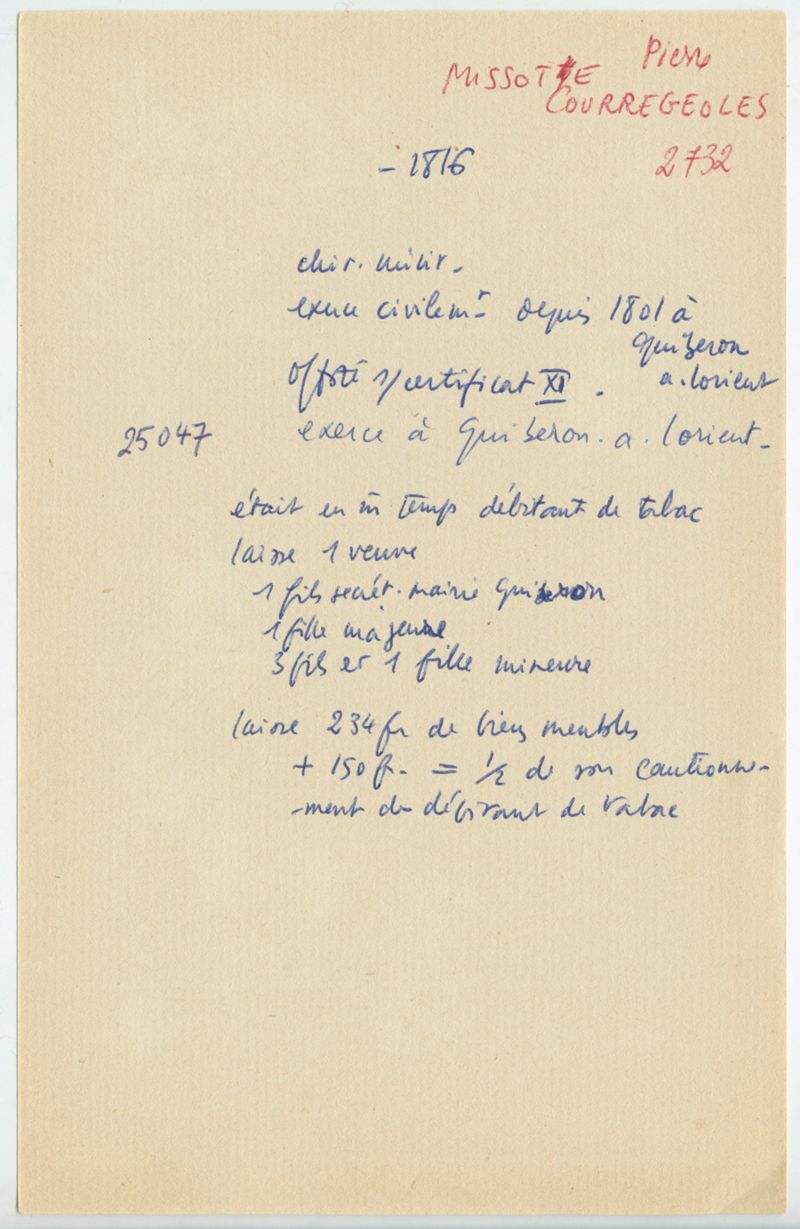 MISSOTTE Pierre
COURREGEOLES
- 1816
2732
chir. milit.
exerce civilemt depuis 1801 à
Quiberon
a. lorient
s/certificat XI.
25047
exerce à Quiberon. a. lorient.
était en m̄ temps débitant de tabac
laisse 1 veuve
1 fils secrét. mairie Quiberon
1 fille majeure
3 fils et 1 fille mineure
laisse 234 fr de biens meubles
+ 150 fr. = 1/2 de son cautionne-
-ment de débitant de tabac